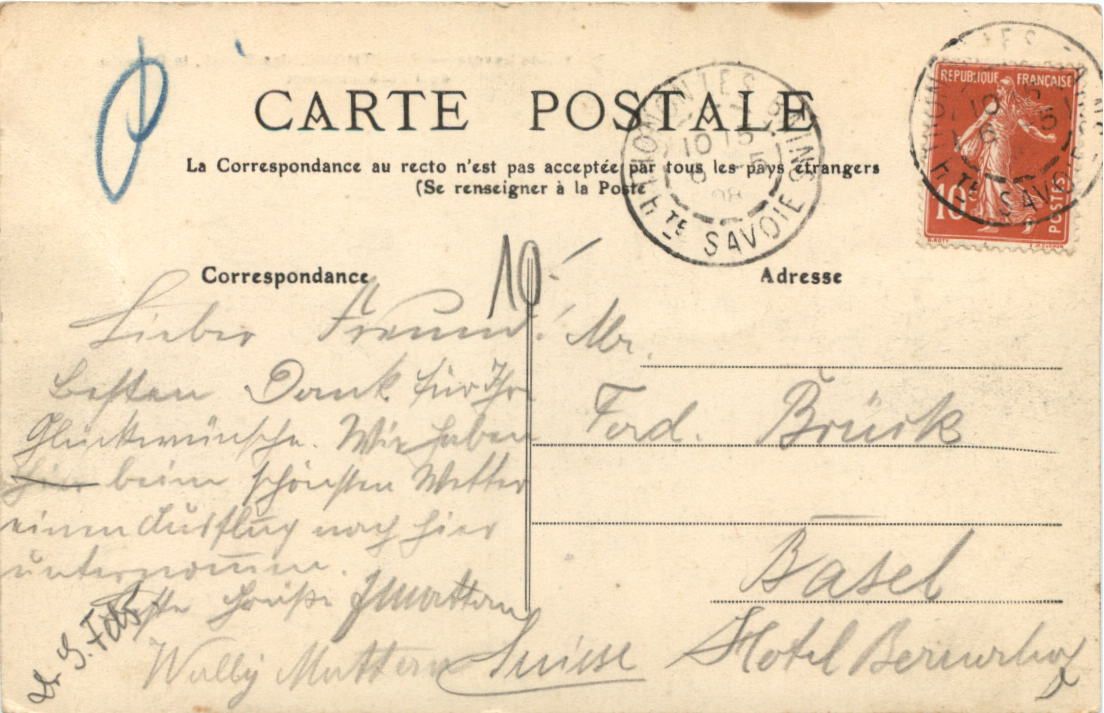 CARTE POSTALE
La Correspondance au recto n'est pas acceptée par tous les pays étrangers
(Se renseigner à la Poste
THONON LES BAINS
10 15
6 5
08
HTE SAVOIE
REPUBLIQUE FRANÇAISE
10
POSTES
THONON LES BAINS
10 15
6 5
HTE SAVOIE
10.-
Correspondance
Lieber Freund!
besten Dank für Ihre
Glückwünsche. Wir haben
hier beim schönsten Wetter
einen Ausflug nach hier
unternommen.
Beste Grüße
Wally Mattern
Adresse
Mr.
Ferd. Brück
Basel
Suisse Hotel